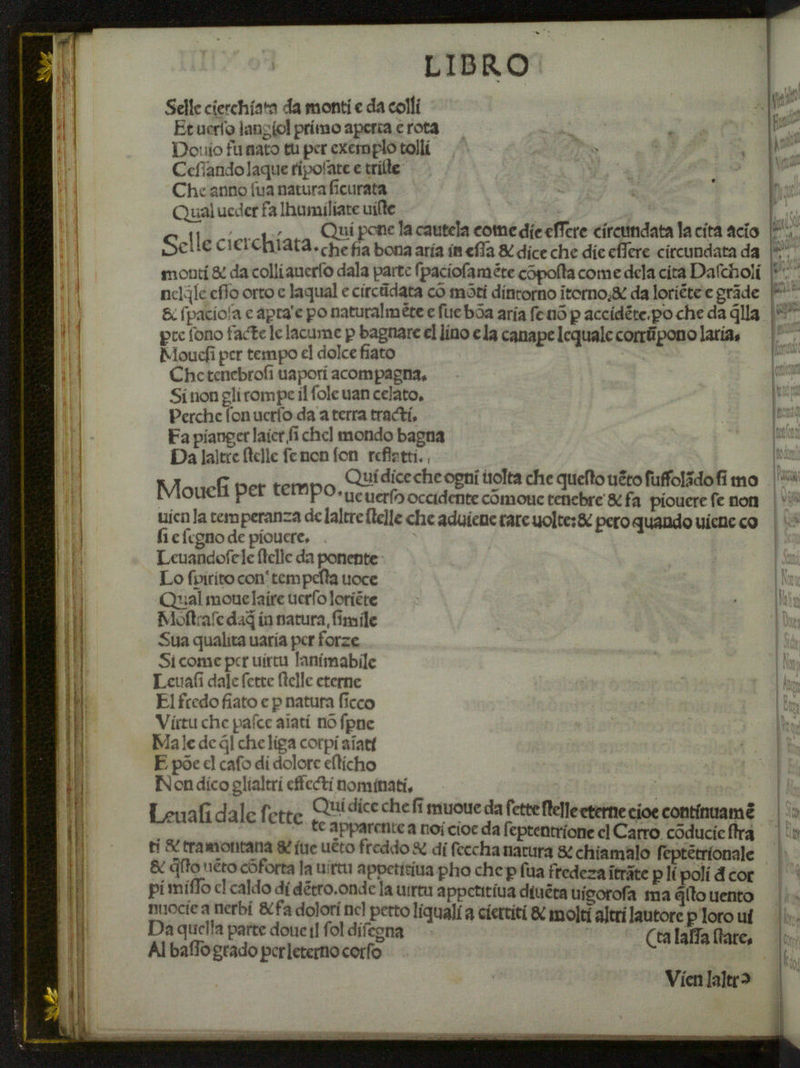 LIBRO
Selle cierchiata da monti e da colli
Et uerſo langiol primo aperta e rota
Douio fu nato tu per exemplo tolli
Ceſſando laque ripoſate e triſte
Che anno ſua natura ſicurata
Qual ueder fa lhumiliate uiſte
Selle cierchiata. Qui pone la cautela come die eſſere circundata la cita acio
che ſia bona aria in eſſa & dice che die eſſere circundata da
monti & da colli auerſo dala parte ſpacioſamēte cōpoſta come dela cita Daſcholi
nelq̄le eſſo orto e laqual e circūdata cō mōti dintorno itorno,& da loriēte e grāde
& ſpacioſa e apta'e po naturalmēte e ſue bōa aria ſe nō p accidēte.po che da q̄lla
pte ſono facte le lacume p bagnare el lino e la canape lequale corrūpono laria.
Moueſi per tempo el dolce fiato
Che tenebroſi uapori acompagna.
Si non gli rompe il ſole uan celato.
Perche ſon uerſo da a terra tracti.
Fa pianger laier,ſi chel mondo bagna
Da laltre ſtelle ſe non ſon reflatti.
Moueſi per tempo. Qui dice che ogni uolta che queſto uēto ſuffolādo ſi mo
ue uerſo occidente cōmoue tenebre & fa piouere ſe non
uien la temperanza de laltre ſtelle che aduiene rare uolte:& pero quando uiene co
ſi e ſegno de piouere.
Leuandoſe le ſtelle da ponente
Lo ſpirito con' tempeſta uoce
Qual moue laire uerſo loriēte
Moſtraſe daq̄ in natura, ſimile
Sua qualita uaria per forze
Si come per uirtu lanimabile
Leuaſi dale ſette ſtelle eterne
El fredo fiato e p natura ſicco
Virtu che paſce aiati nō ſpne
Ma le de q̄l che liga corpi aiati
E pōe el caſo di dolore eſticho
Non dico glialtri effecti nominati.
Leuaſi dale ſette Qui dice che ſi muoue da ſette ſtelle eterne cioe continuamē
te apparente a noi cioe da ſeptentrione el Carro cōducie ſtra
ti & tramontana & iue uēto freddo & di ſeccha natura & chiamalo ſeptētrionale
& q̄ſto uēto cōforta la uirtu appetitiua pho che p ſua fredeza itrāte p li poli d cor
pi miſſo el caldo di dētro.onde la uirtu appetitiua diuēta uigoroſa ma q̄ſto uento
nuocie a nerbi & fa dolori nel petto liquali a ciertiti & molti altri lautore p loro ui
Da quella parte doue il ſol diſegna (ta laſſa ſtare.
Al baſſo grado per leterno corſo
Vien laltro